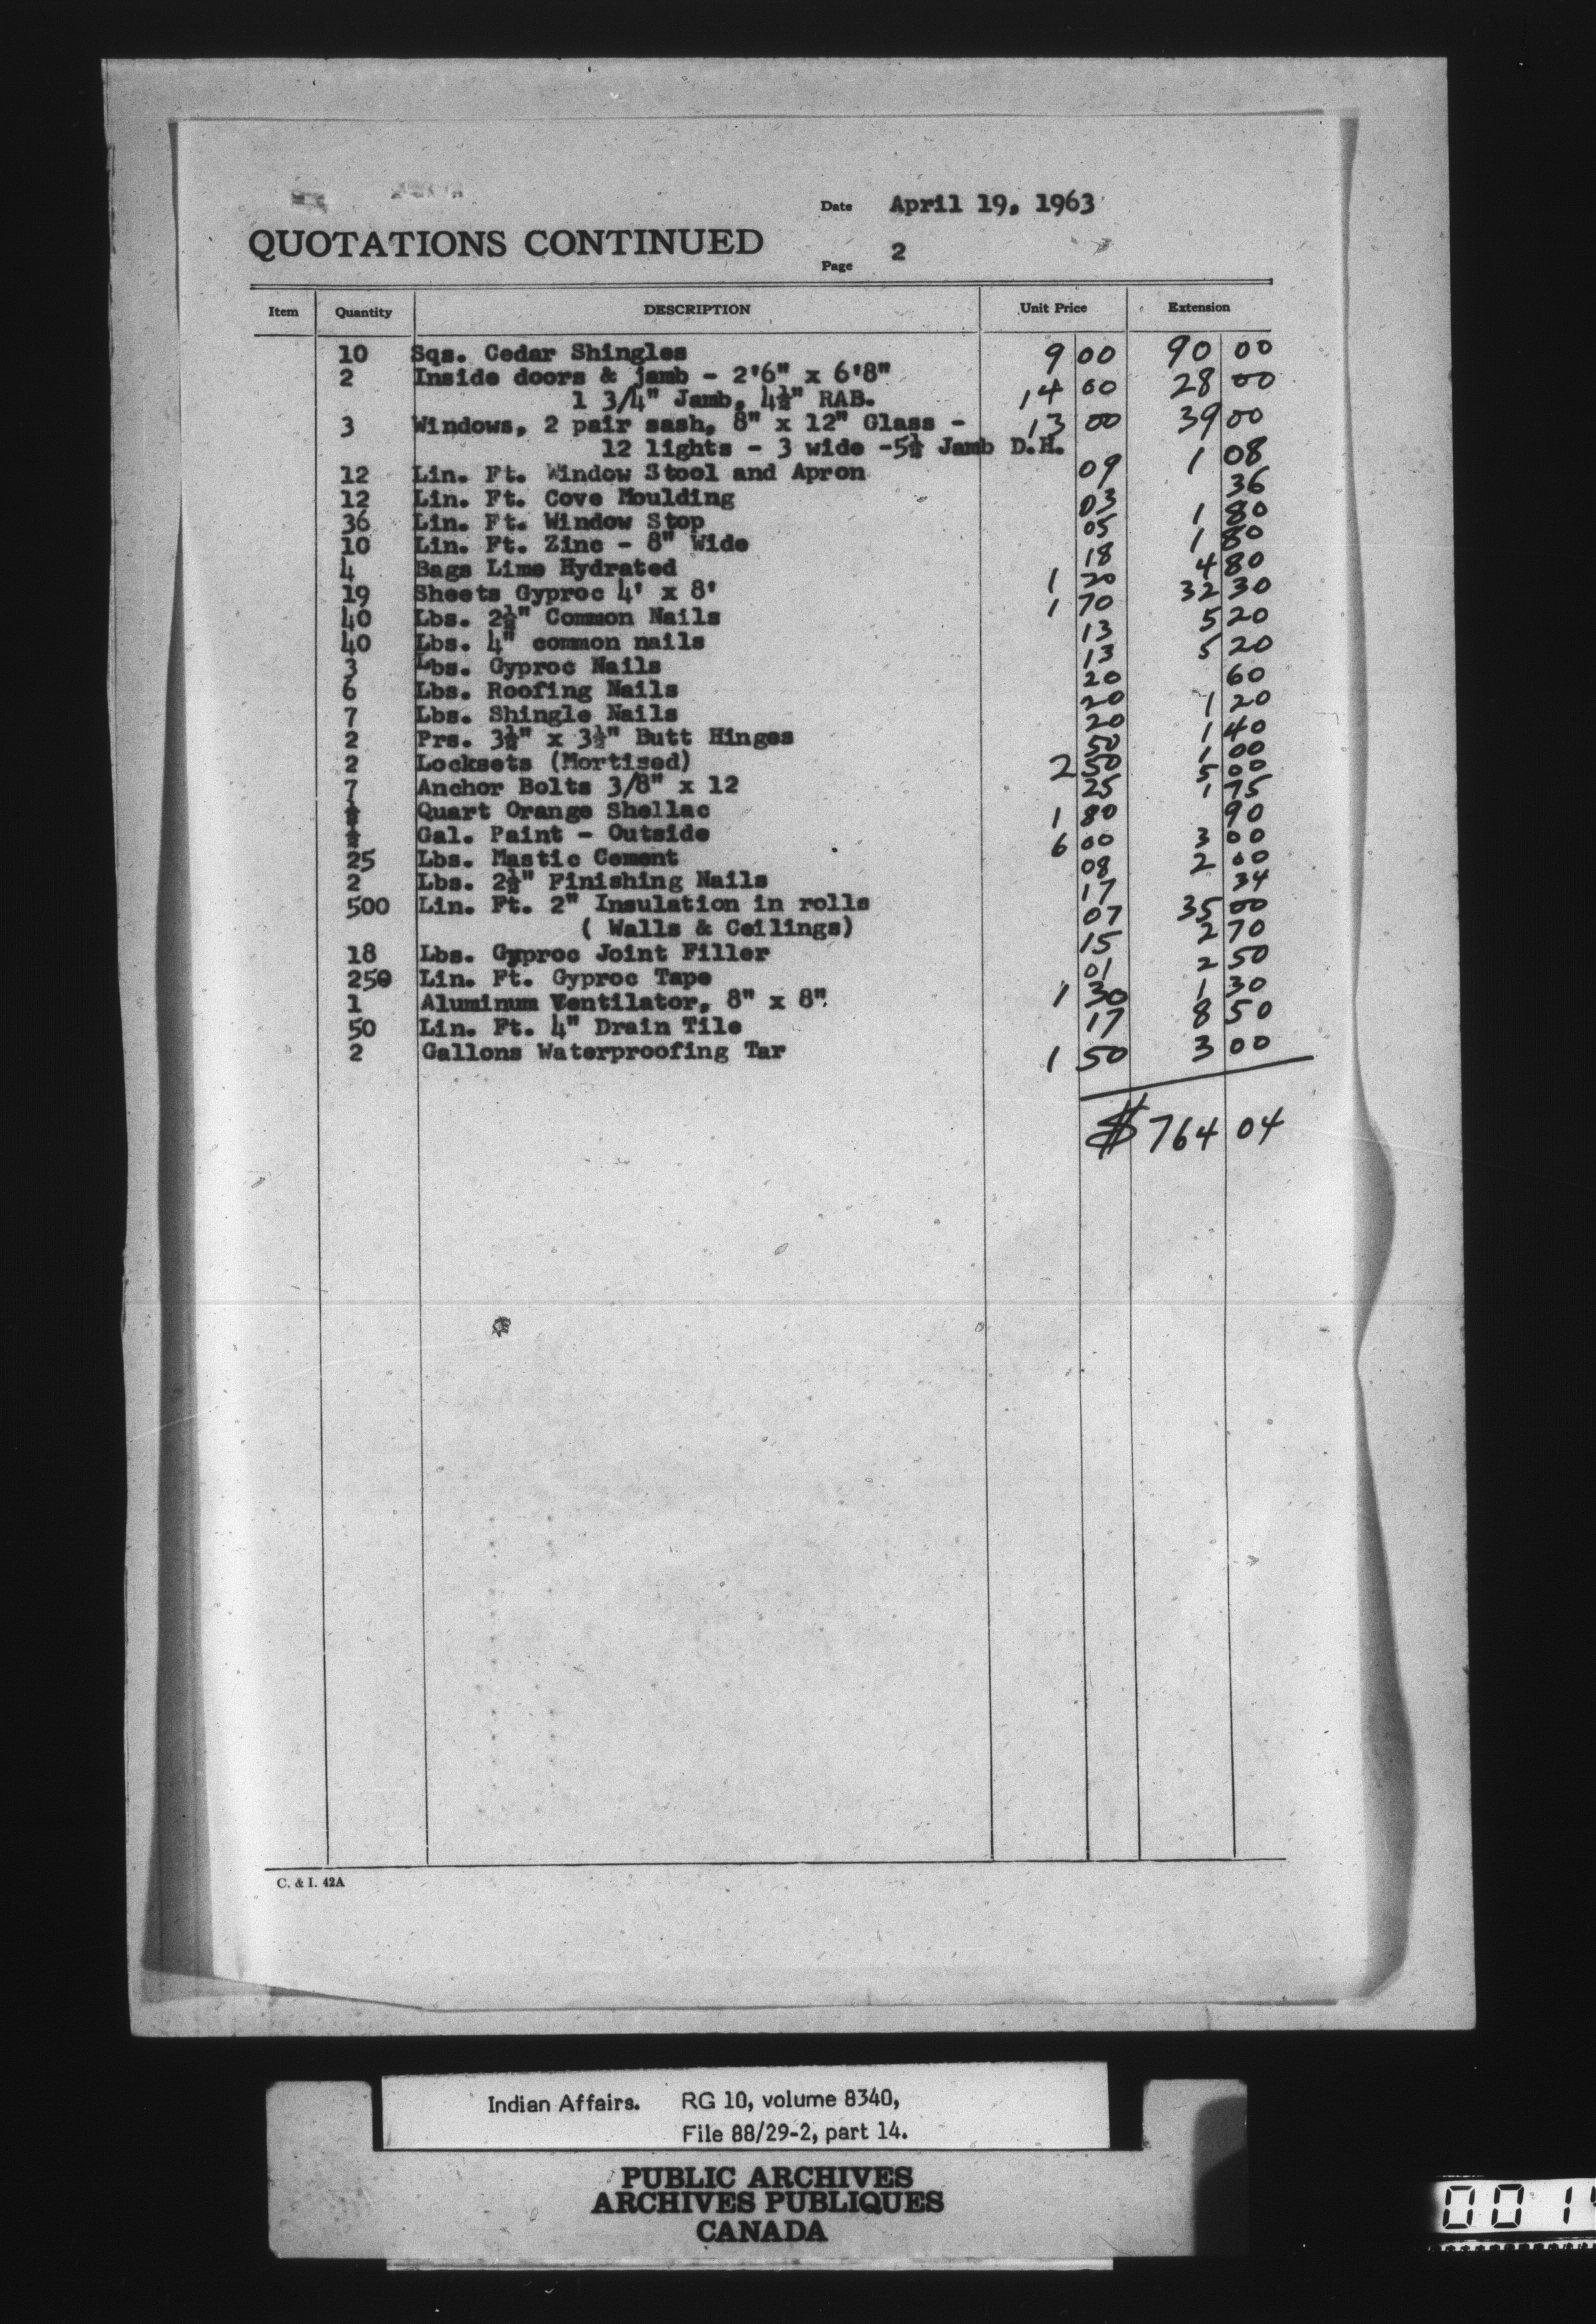 Date April 19, 1963
QUOTATIONS CONTINUED
Page 2
Item Quantity DESCRIPTION Unit Price Extension
10 Sqs. Cedar Shingles 9 00 90 00
2 Inside doors & jamb - 2'6" x 6'8" 14 00 28 00
1 3/4" Jamb, 4½" RAB.
3 Windows, 2 pair sash, 8" x 12" Glass - 13 00 39 00
12 lights - 3 wide -5½ Jamb D.H.
12 Lin. Ft. Window Stool and Apron 09 1 08
12 Lin. Ft. Cove Moulding 03 36
36 Lin. Ft. Window Stop 05 1 80
10 Lin. Ft. Zinc - 8" Wide 18 1 80
4 Bags Lime Hydrated 1 20 4 80
19 Sheets Gyproc 4' x 8' 1 70 32 30
40 Lbs. 2½" Common Nails 13 5 20
40 Lbs. 4" common nails 13 5 20
3 Lbs. Gyproc Nails 20 60
6 Lbs. Roofing Nails 20 1 20
7 Lbs. Shingle Nails 20 1 40
2 Prs. 3½" x 3½" Butt Hinges 50 1 00
2 Locksets (Mortised) 2 50 5 00
7 Anchor Bolts 3/8" x 12 25 1 75
½ Quart Orange Shellac 1 80 90
½ Gal. Paint - Outside 6 00 3 00
25 Lbs. Mastic Cement 08 2 00
2 Lbs. 2½" Finishing Nails 17 34
500 Lin. Ft. 2" Insulation in rolls 07 35 00
( Walls & Ceilings)
18 Lbs. Gyproc Joint Filler 15 2 70
250 Lin. Ft. Gyproc Tape 01 2 50
1 Aluminum Ventilator, 8" x 8" 1 30 1 30
50 Lin. Ft. 4" Drain Tile 17 8 50
2 Gallons Waterproofing Tar 1 50 3 00
$ 764 04
C. & I. 42A
Indian Affairs. RG 10, volume 8340,
File 88/29-2, part 14.
PUBLIC ARCHIVES
ARCHIVES PUBLIQUES
CANADA
001